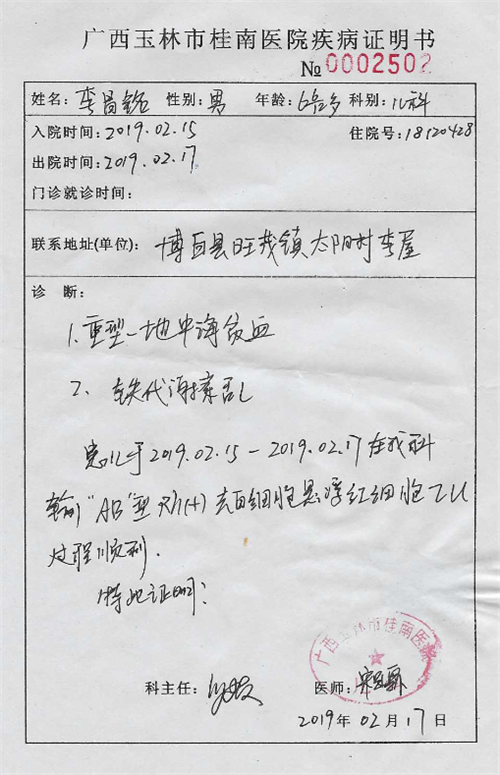 广西玉林市桂南医院疾病证明书
№0002502
姓名：李昌锐 性别：男 年龄：6岁 科别：儿科
入院时间：2019.02.15 住院号：18120428
出院时间：2019.02.17.
门诊就诊时间：
联系地址(单位)：博白县旺茂镇太阳村李屋
诊 断：
1.重型-地中海贫血
2、铁代谢紊乱
患儿于2019.02.15-2019.02.17在我科
输"AB"型Rh(+)去白细胞悬浮红细胞2U
过程顺利.
特此证明；
广西玉林市桂南医院
科主任： 医师：
2019年02月17日